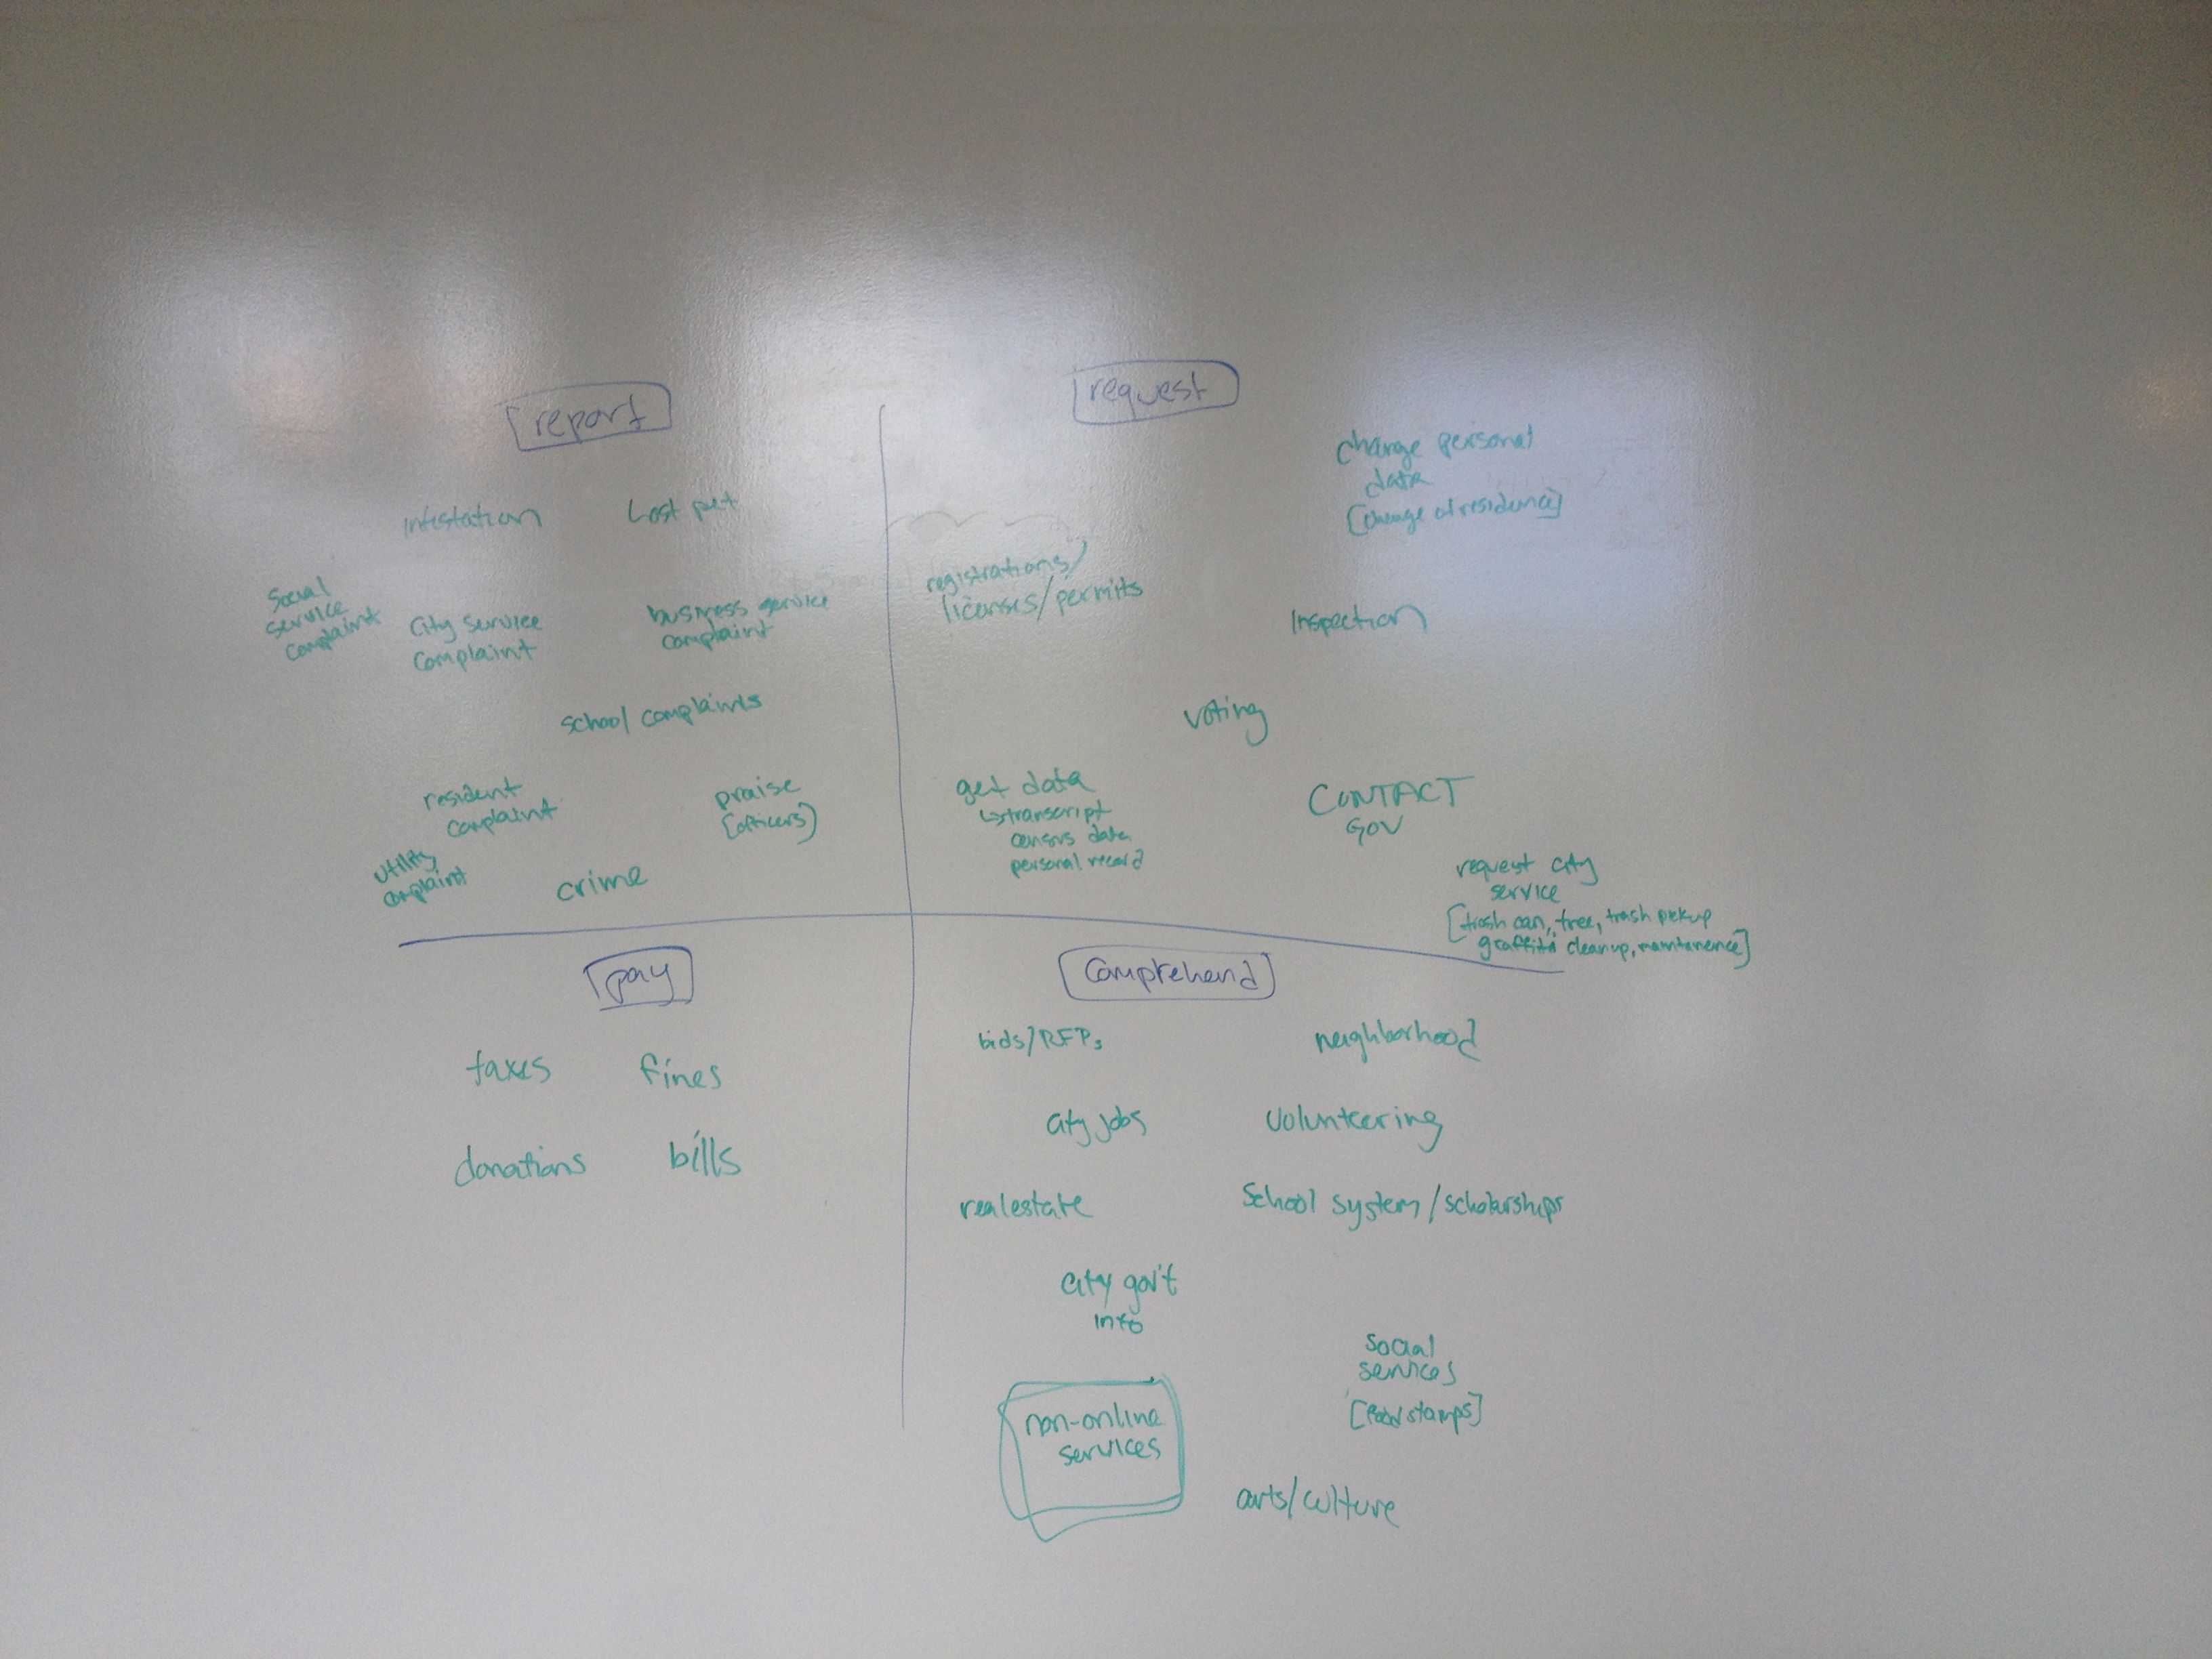 report
Infestation
Lost pet
Social
service
complaint
City service
complaint
business service
complaint
school complaints
resident
complaint
praise
[officers]
utility
complaint
crime
request
change personal
data
[change of residence]
registrations/
licenses/permits
Inspection
voting
get data
↳transcript
census data
personal record
CONTACT
GOV
request city
service
[trash can, tree, trash pickup
graffiti cleanup, maintenence]
pay
taxes
fines
donations
bills
Comprehend
bids/RFPs
neighborhood
city jobs
Volunteering
realestate
School system/scholarships
city gov't
info
social
services
[food stamps]
non-online
services
arts/culture